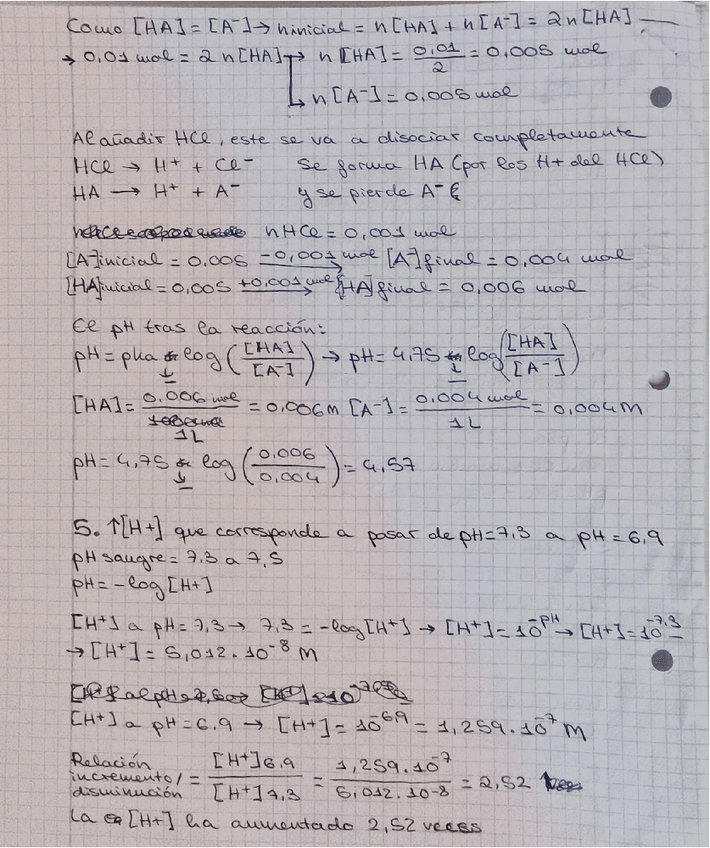 Como [HA] = [A⁻] → ninicial = n[HA] + n[A⁻] = 2n[HA] —
→ 0,01 mol = 2 n[HA] → n [HA] = 0,01/2 = 0,005 mol
↳ n[A⁻] = 0,005 mol
Al añadir HCl, este se va a disociar completamente
HCl → H⁺ + Cl⁻ Se forma HA (por los H+ del HCl)
HA → H⁺ + A⁻ y se pierde A⁻
nHCl = 0,001 mol
[A⁻]inicial = 0,005 −0,001 mol → [A⁻]final = 0,004 mol
[HA]inicial = 0,005 +0,001 mol → [HA]final = 0,006 mol
El pH tras la reacción:
pH = pKa − log ([HA]/[A⁻]) → pH = 4,75 − log ([HA]/[A⁻])
[HA] = 0,006 mol/1L = 0,006M [A⁻] = 0,004 mol/1L = 0,004M
pH = 4,75 − log (0,006/0,004) = 4,57
5. ↑[H+] que corresponde a pasar de pH=7,3 a pH = 6,9
pH sangre = 7,3 a 7,5
pH = -log [H+]
[H⁺] a pH = 7,3 → 7,3 = -log[H⁺] → [H⁺] = 10^-pH → [H⁺] = 10^-7,3 —
→ [H⁺] = 5,012 · 10⁻⁸ M
[H⁺] a pH = 6,9 → [H⁺] = 10^-6,9 = 1,259 · 10⁻⁷ M
Relación incremento/disminución = [H⁺]6,9/[H⁺]7,3 = 1,259 · 10⁻⁷/5,012 · 10⁻⁸ = 2,52
La [H+] ha aumentado 2,52 veces